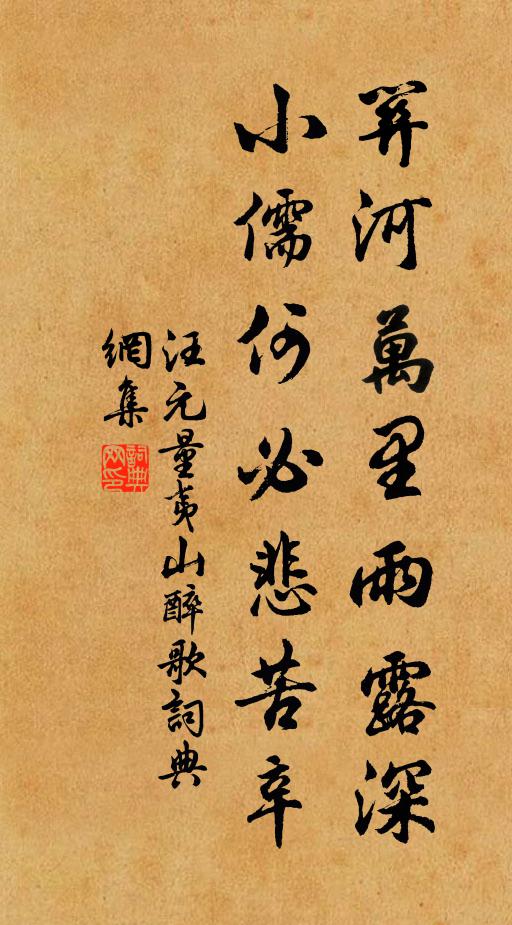 關河萬里雨露深
小儒何必悲苦辛
汪元量夷山醉歌詞典
網集
詞典
网印